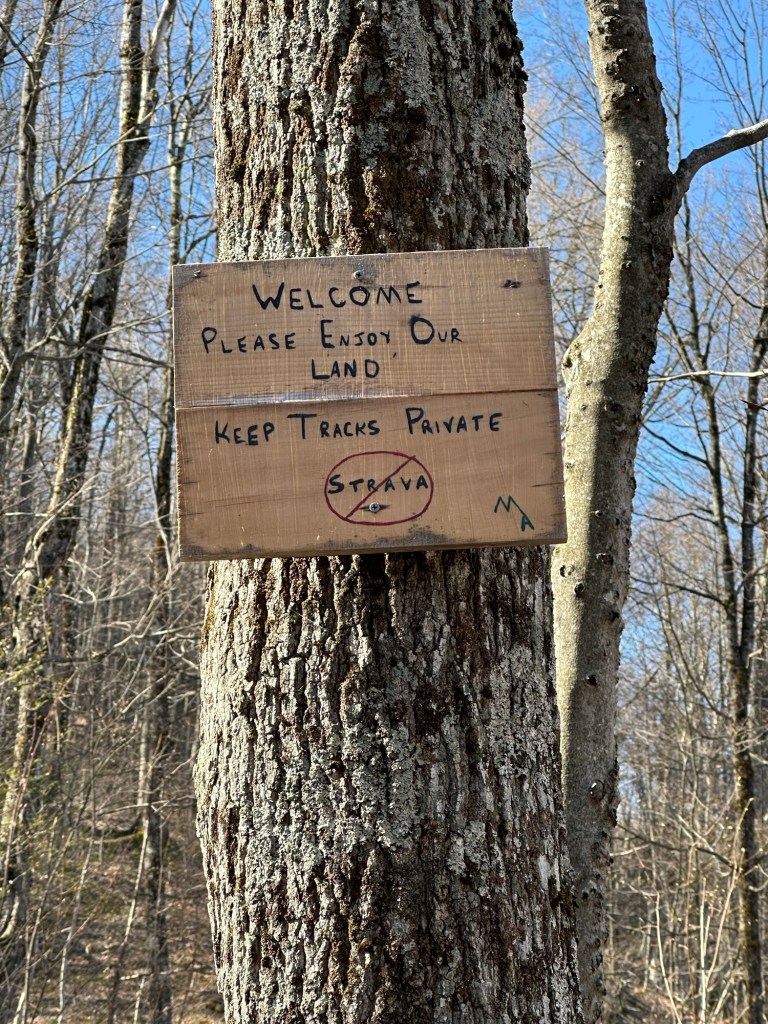 WELCOME
PLEASE ENJOY OUR
LAND
KEEP TRACKS PRIVATE
STRAVA
MA